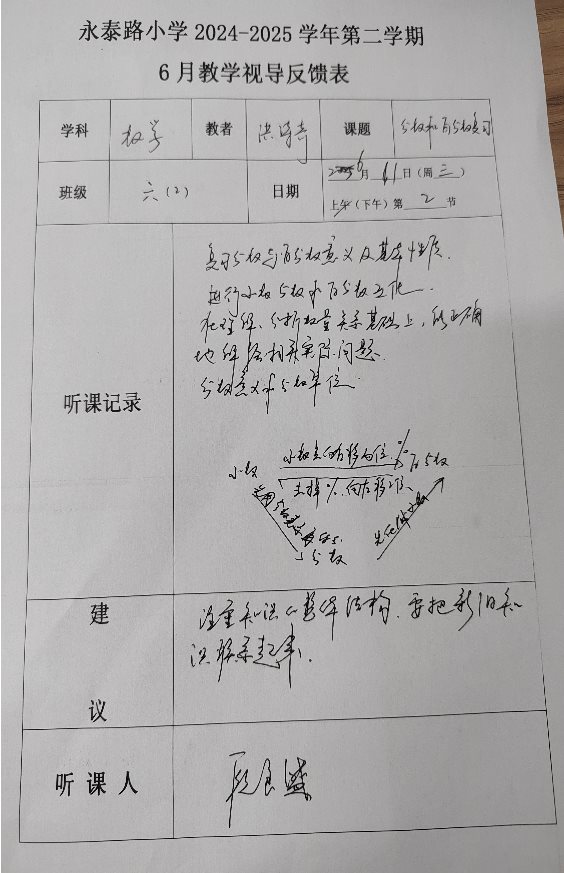 永泰路小学 2024-2025 学年第二学期
6 月教学视导反馈表
学科 数学 教者 课题 分数和百分数复习
班级 六（2） 日期 6月11日（周三）
上午（下午）第 2 节
听课记录
复习分数与百分数意义及基本性质.
进行小数分数和百分数互化.
在理解、分析数量关系基础上，能正确
地解答相关实际问题.
分数意义和分数单位.
小数点向右移两位, %
小数 百分数
去掉%, 向左移2位.
分数
建
议
注重知识的整体结构, 要把新旧知
识联系起来.
听 课 人